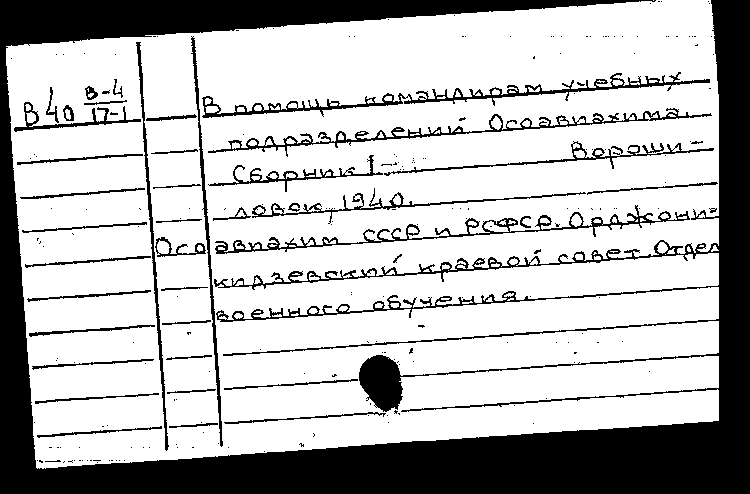 В40 В-4/17-1
В помощь командирам учебных
подразделений Осоавиахима.
Сборник 1- Вороши-
ловск, 1940.
Осоавиахим СССР и РСФСР. Орджони-
кидзевский краевой совет. Отдел
военного обучения.